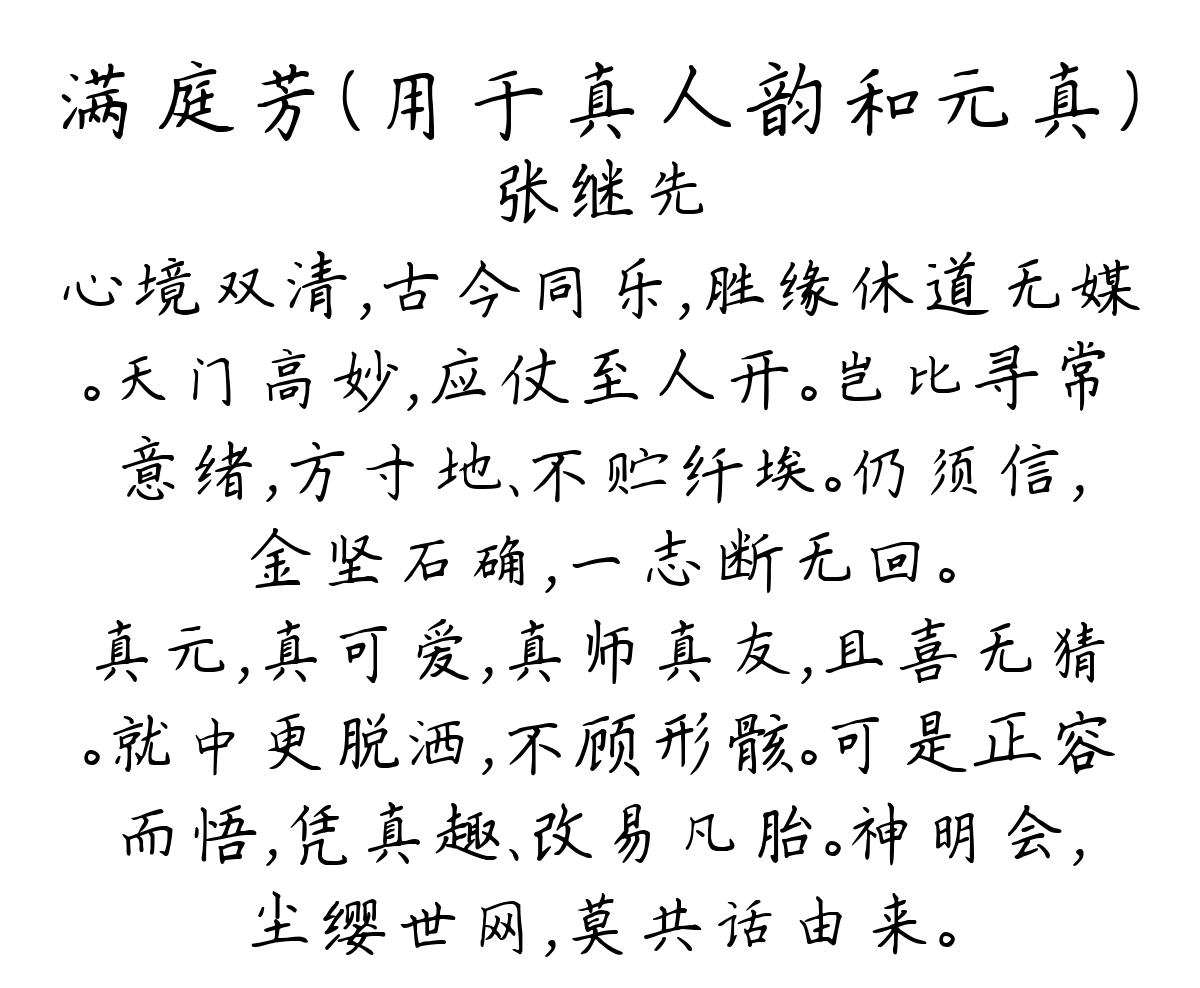 满庭芳(用于真人韵和元真)
张继先
心境双清,古今同乐,胜缘休道无媒
。天门高妙,应仗至人开。岂比寻常
意绪,方寸地、不贮纤埃。仍须信,
金坚石确,一志断无回。
真元,真可爱,真师真友,且喜无猜
。就中更脱洒,不顾形骸。可是正容
而悟,凭真趣、改易凡胎。神明会,
尘缨世网,莫共话由来。